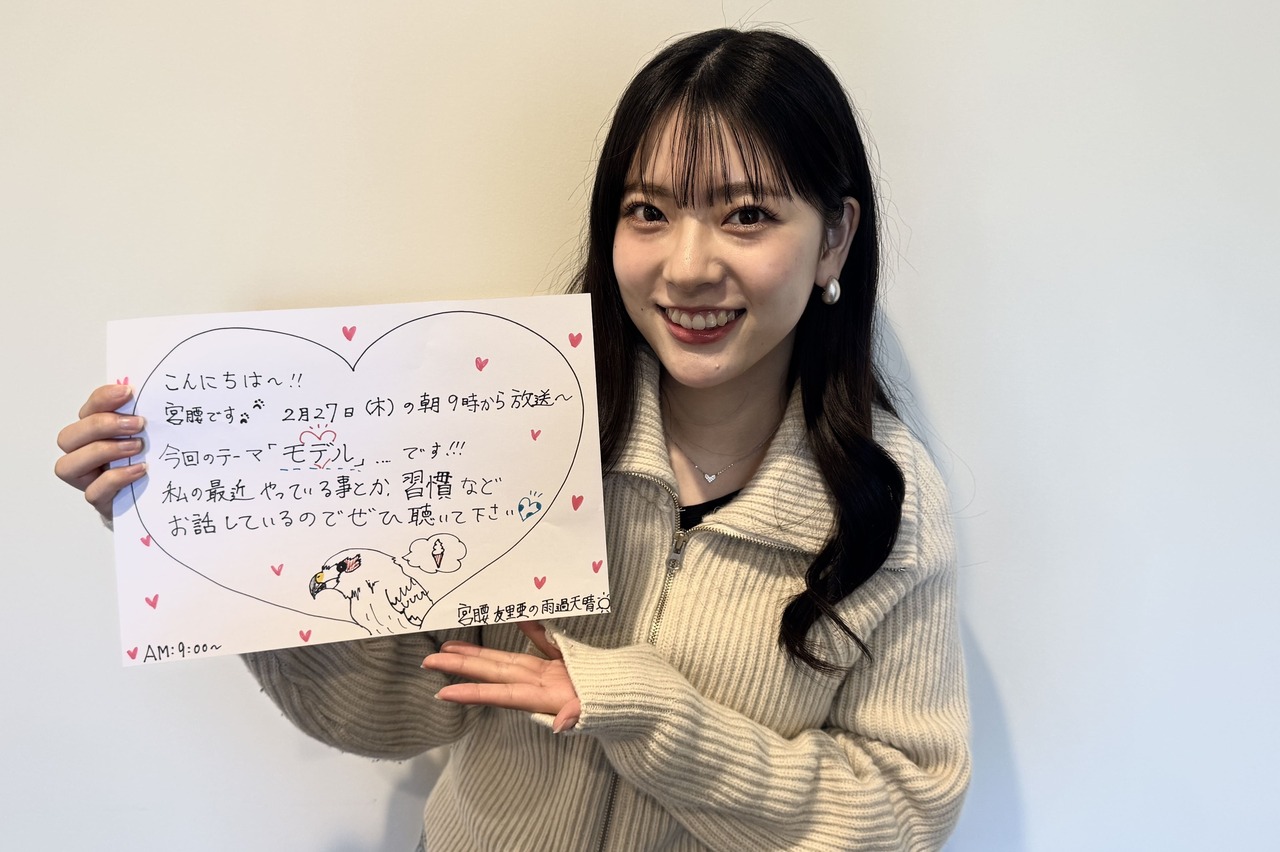 こんにちは〜!!
宮腰です 2月27日(木)の朝9時から放送〜
今回のテーマ「モデル」…です!!!
私の最近やっている事とか、習慣など
お話しているのでぜひ聴いて下さい
宮腰友里亜の雨過天晴
AM:9:00〜